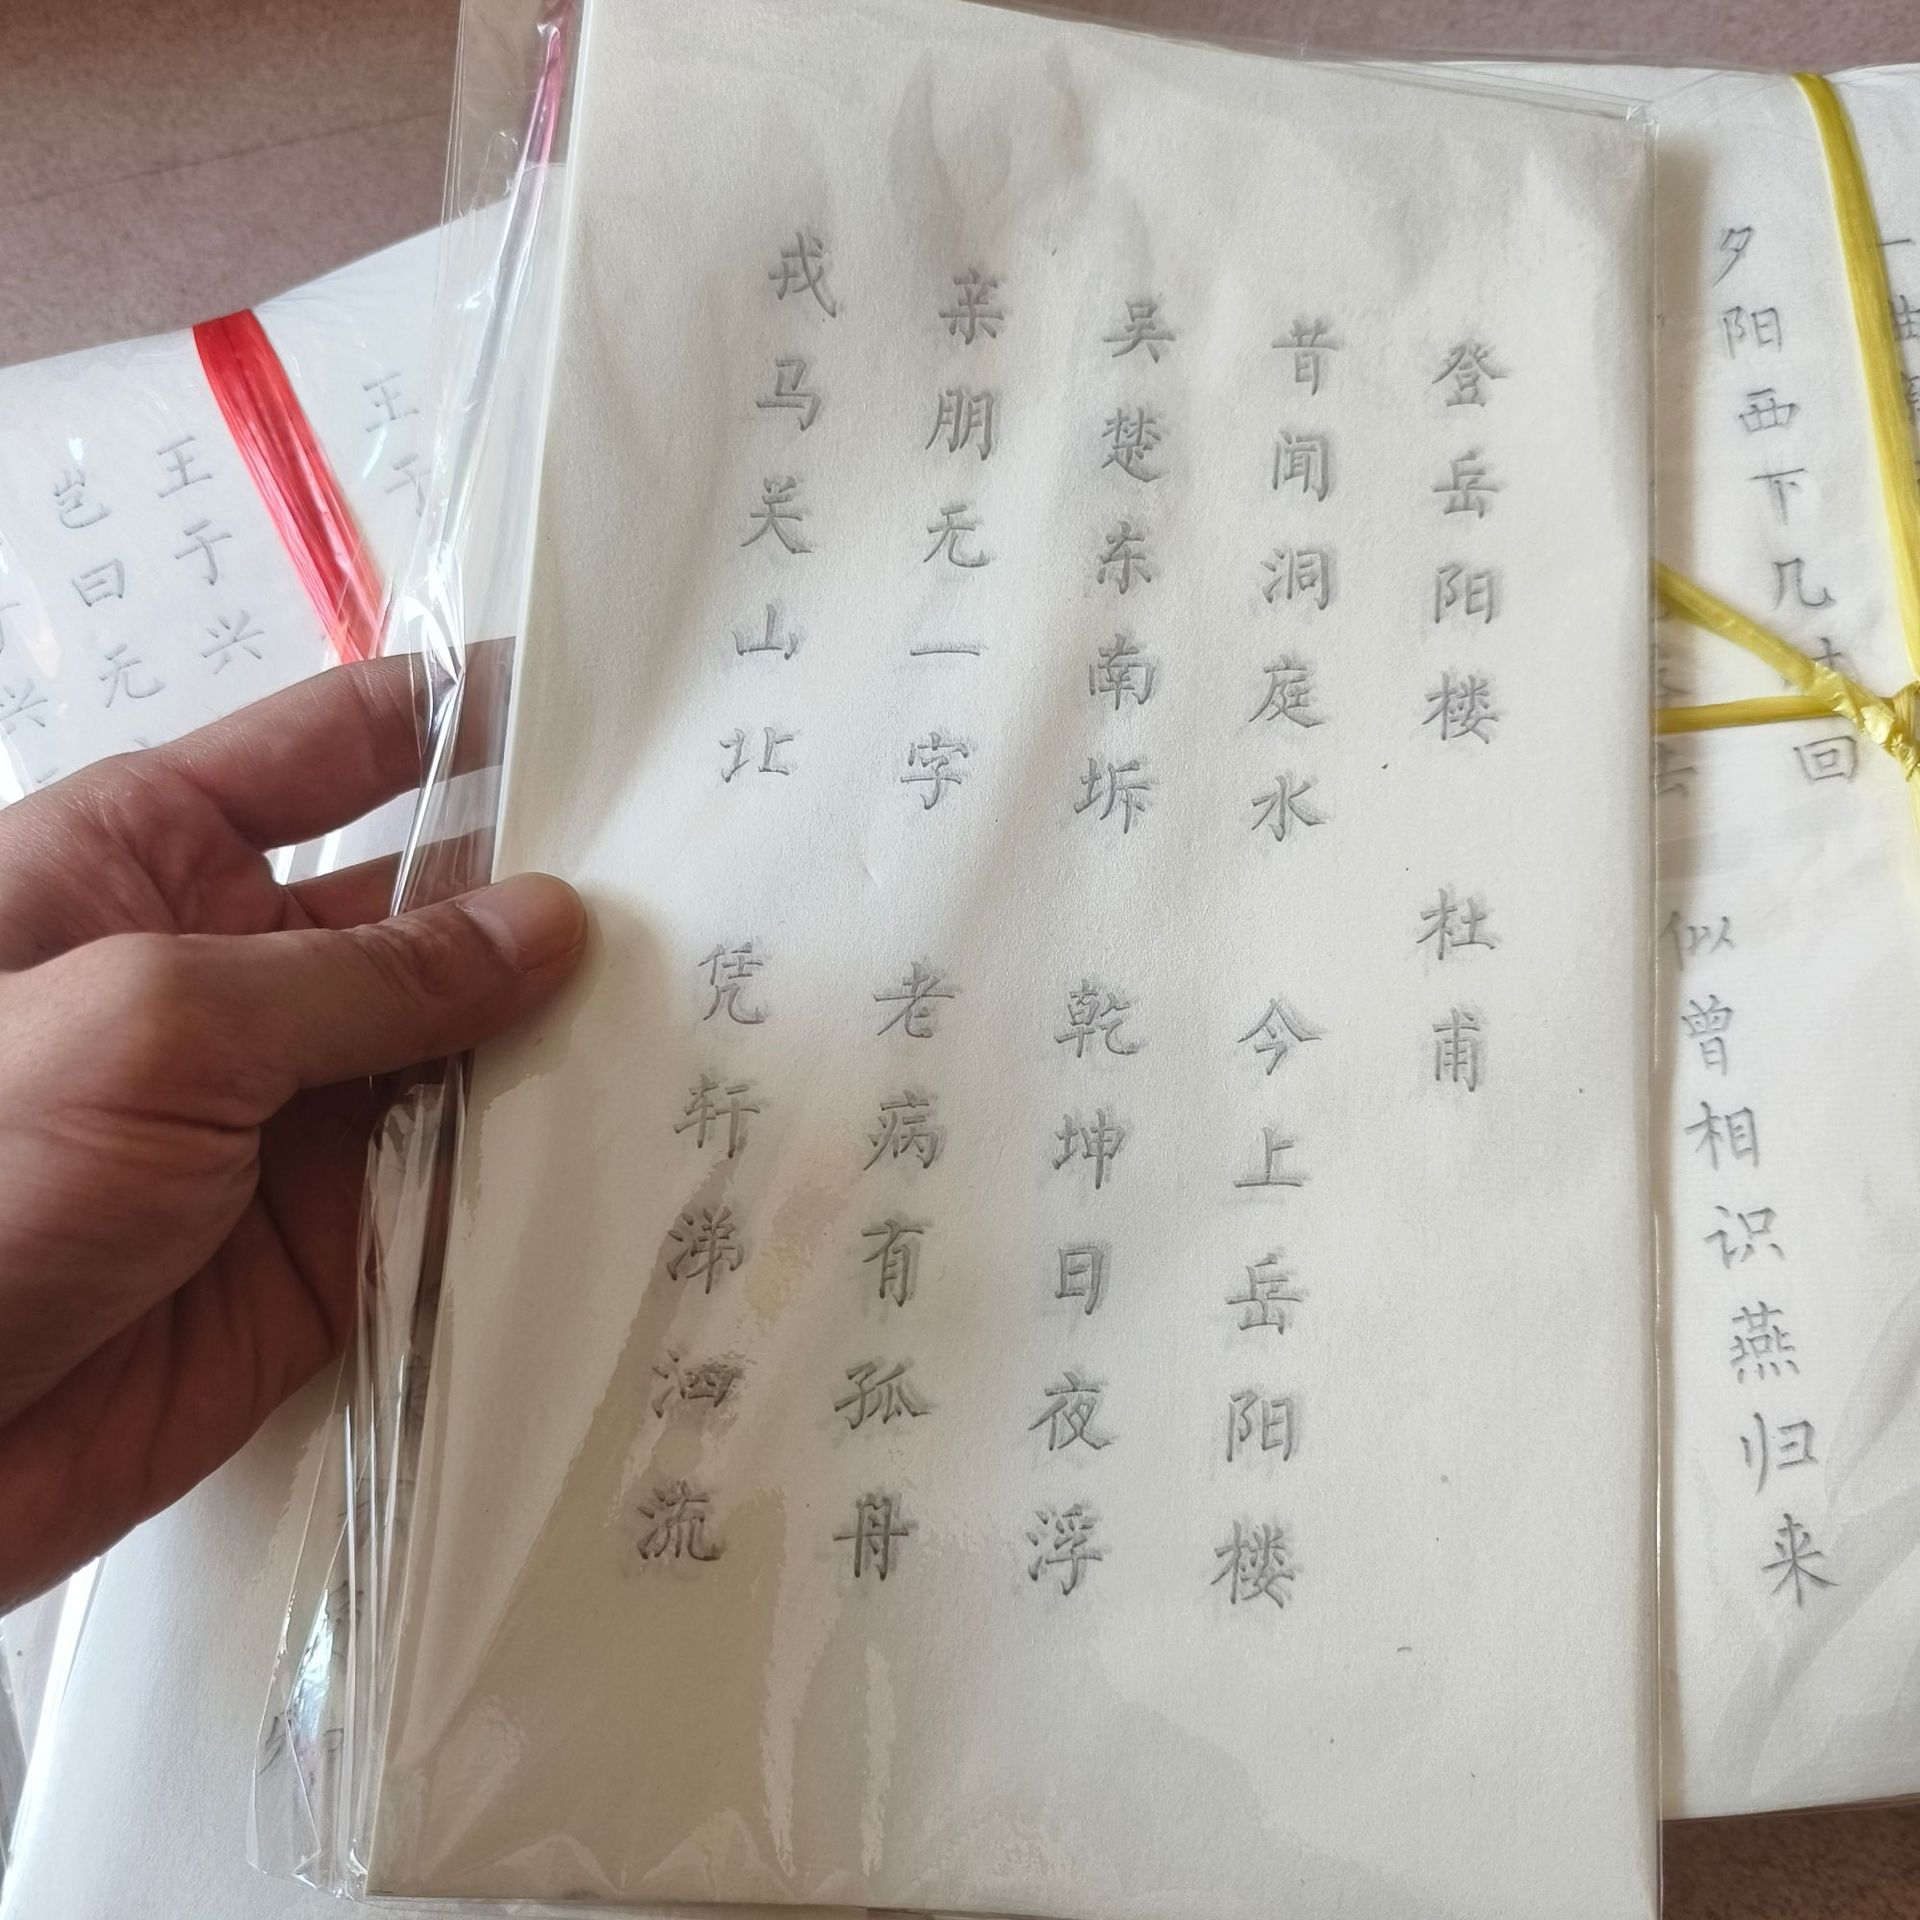 登岳阳楼 杜甫
昔闻洞庭水 今上岳阳楼
吴楚东南坼 乾坤日夜浮
亲朋无一字 老病有孤舟
戎马关山北 凭轩涕泗流
夕阳西下几 回
似曾相识燕归来
王于
王于兴
岂曰无
兴